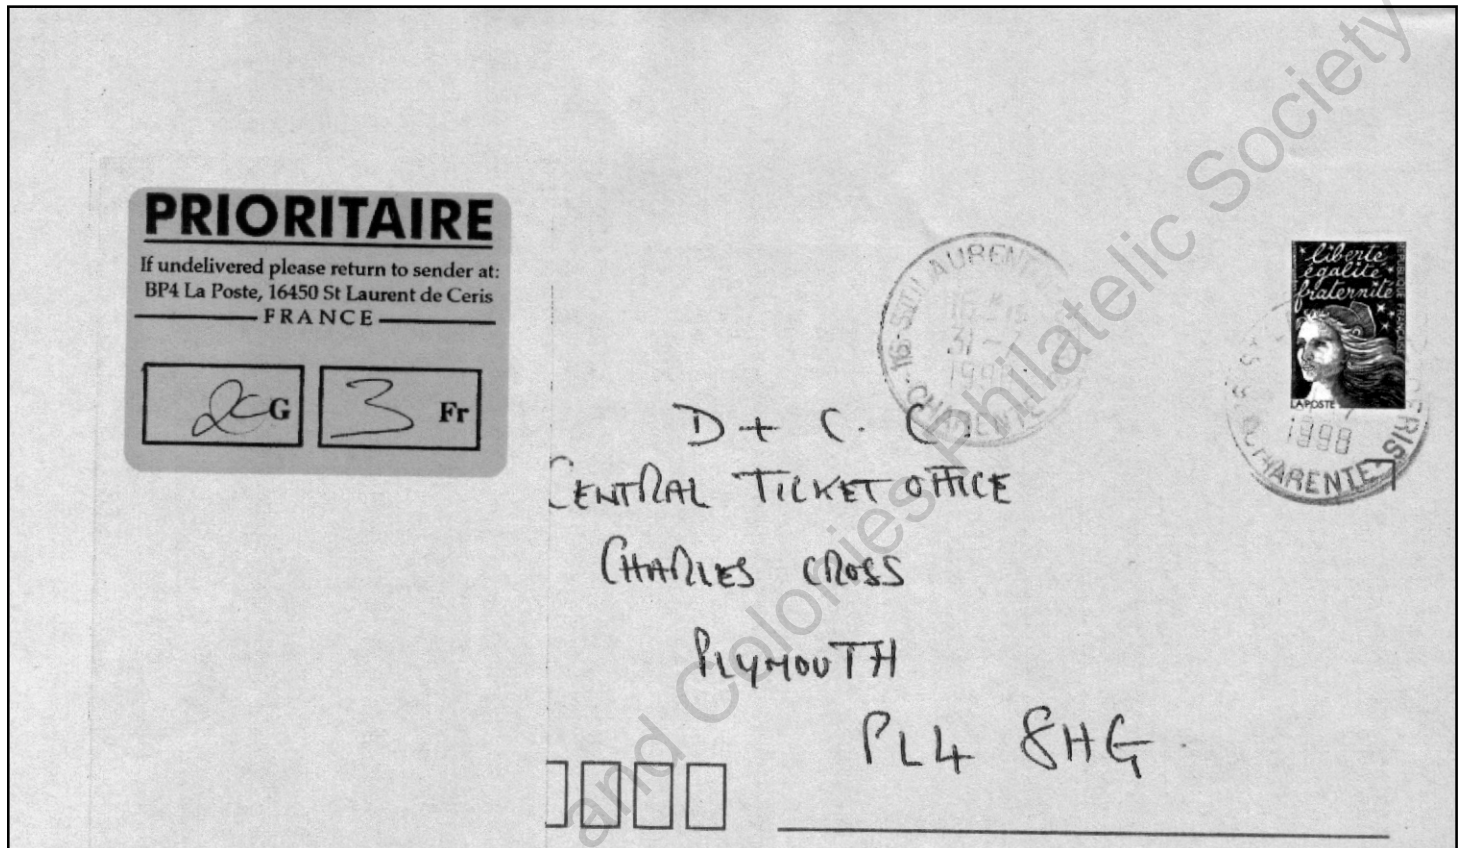 PRIORITAIRE
If undelivered please return to sender at:
BP4 La Poste, 16450 St Laurent de Ceris
FRANCE
G 3 Fr
16 ST LAURENT
31-7
CHARENTE
liberté
égalité
fraternité
RÉPUBLIQUE FRANÇAISE
LA POSTE
1998
CHARENTE
D + C. C.
CENTRAL TICKET OFFICE
CHARLES CROSS
PLYMOUTH
PL4 8HG
and Colonies Philatelic Society